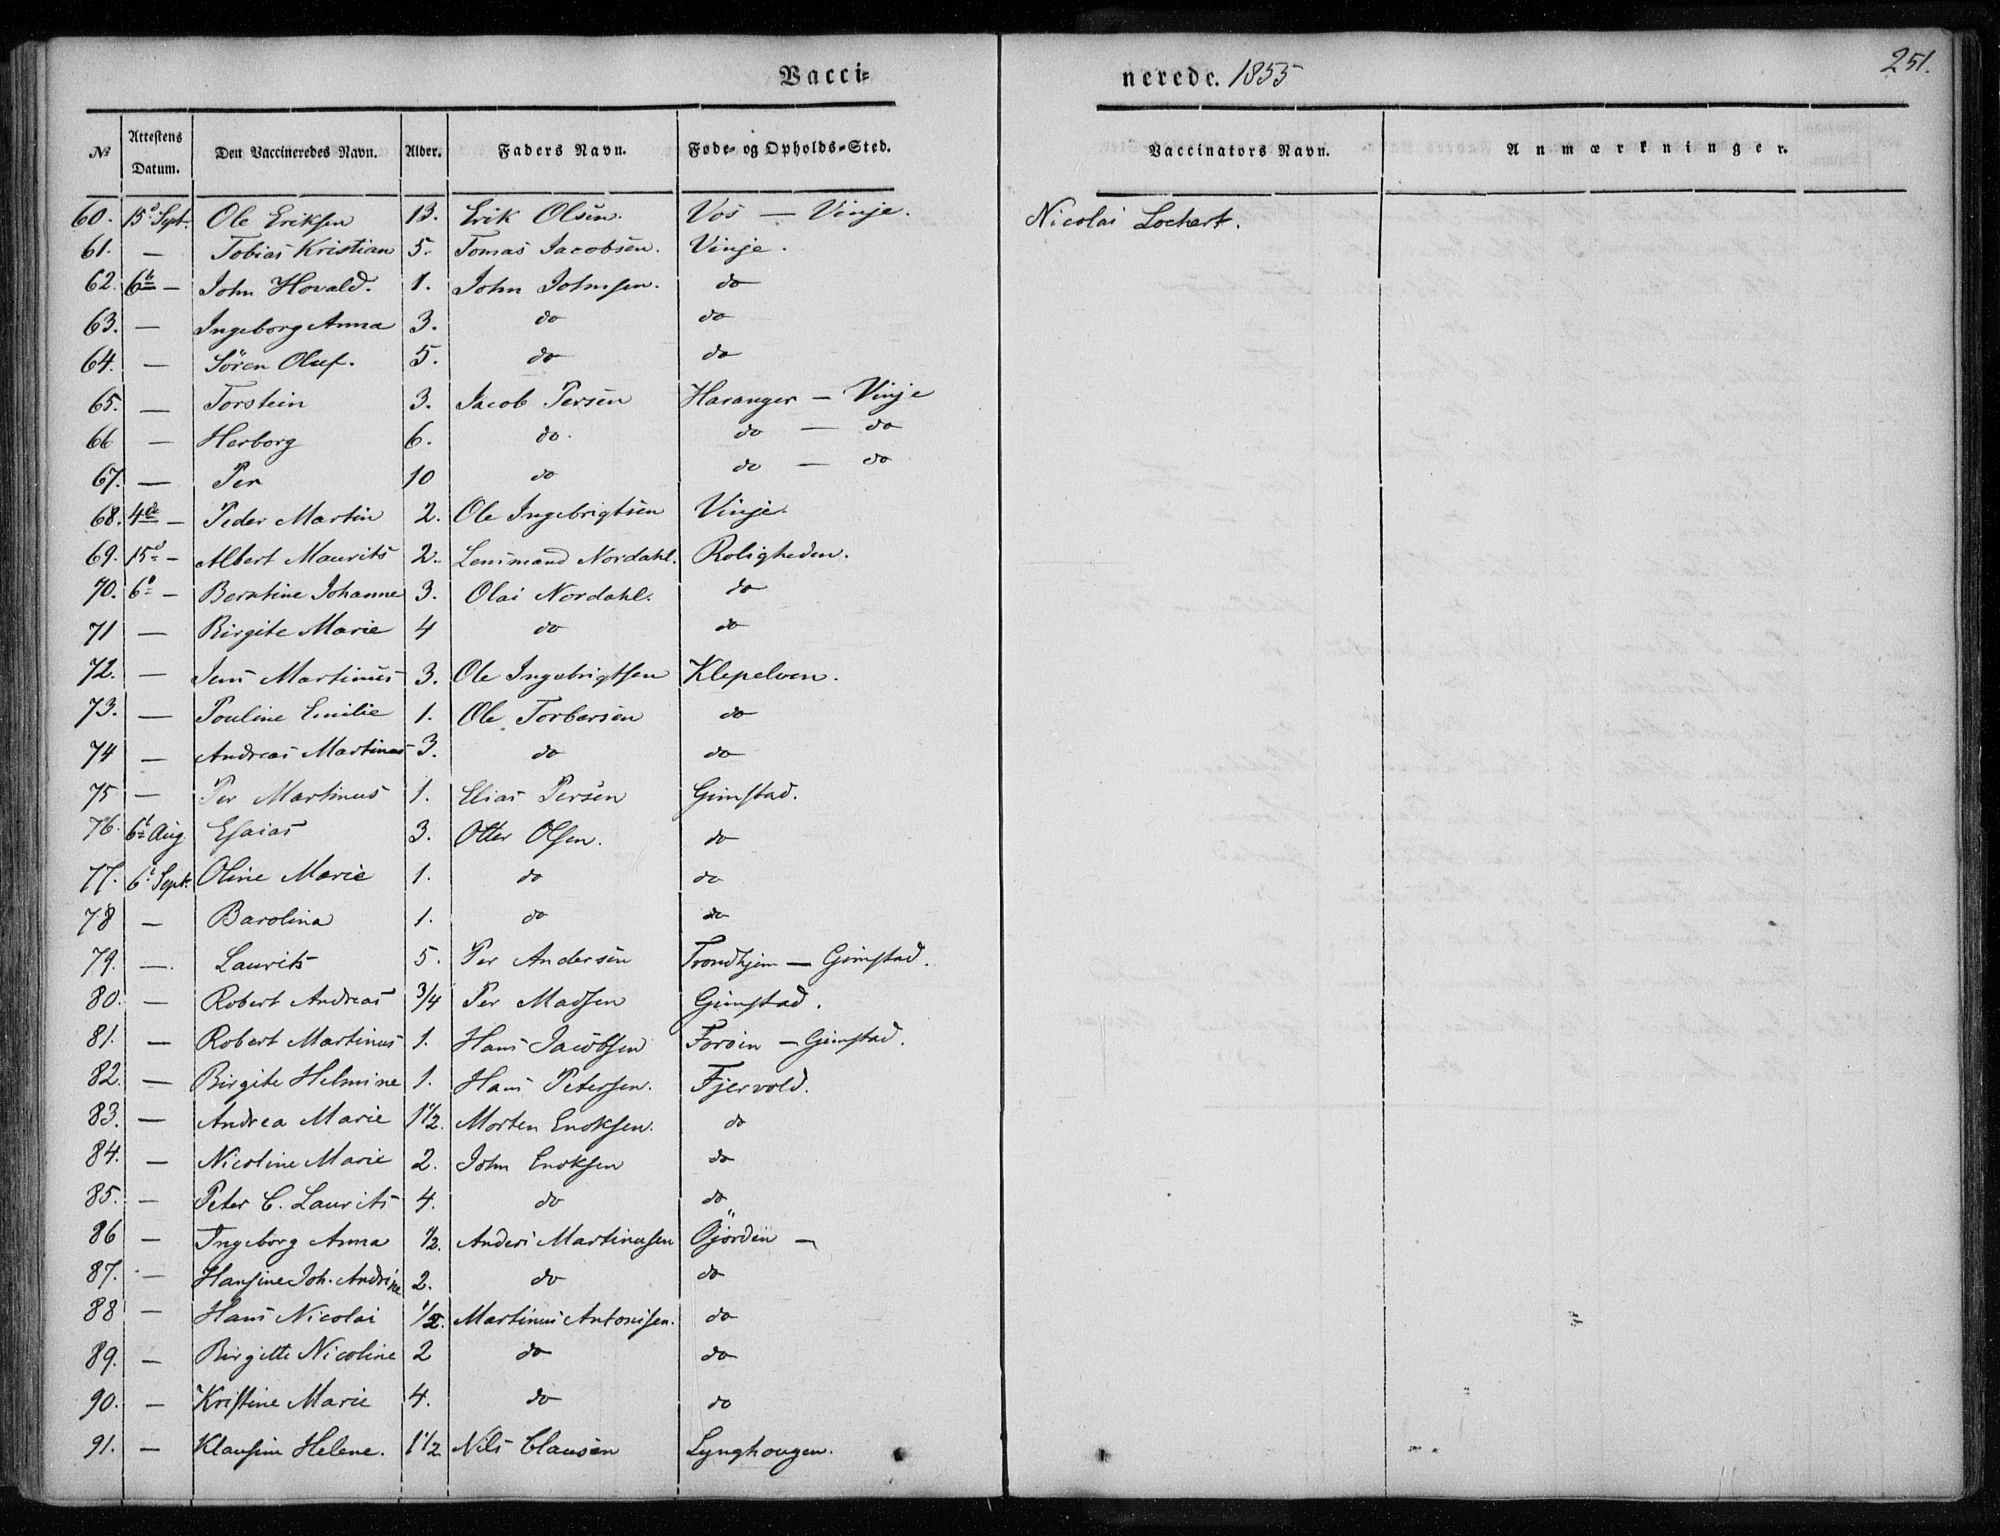 Vacci-
nerede. 1855
251.
№ Attestens Datum. Den Vaccineredes Navn. Alder. Faders Navn. Føde- og Opholds-Sted. Vaccinators Navn. Anmærkninger.
60. 15d Sept. Ole Eriksen 13. Erik Olsen. Vos — Vinje. Nicolai Lochert.
61. — Tobias Kristian 5. Tomas Jacobsen. Vinje.
62. 6te — John Hovald. 1. John Johnsen. do
63. — Ingeborg Anna 3. do do
64. — Sören Oluf. 5. do do
65. — Torstein 3. Jacob Persen Haranger — Vinje
66 — Herborg 6. do. do — do
67. — Per 10 do do — do
68. 4de — Peder Martin 2. Ole Ingebrigtsen Vinje.
69. 15d — Albert Maurits 2. Lensmand Nordahl. Roligheden.
70. 6t — Berntine Johanne 3. Olai Nordahl. do
71 — Birgite Marie 4 do do
72. — Jens Martinus 3. Ole Ingebrigtsen Klepelven.
73. — Pouline Emilie 1. Ole Torbersen do
74 — Andreas Martinus 3. do do
75 — Per Martinus 1. Elias Persen Gimstad.
76. 6t Aug Esaias 3. Otter Olsen. do
77. 6t Sept. Oline Marie 1. do do
78 — Barolina 1. do do
79. — Laurits 5. Per Andersen Trondhjem — Gimstad.
80. — Robert Andreas 3/4 Per Madsen Gimstad.
81. — Robert Martinus 1. Hans Jacobsen Foröin — Gimstad.
82. — Birgite Helmine 1. Hans Petersen. Fjervold.
83. — Andrea Marie 1 1/2. Morten Enoksen. do
84. — Nicoline Marie 2. John Enoksen do
85. — Peter C. Laurits 4. do do
86 — Ingeborg Anna 1/2. Anders Martinusen Gjörden —
87. — Hansine Joh. Andrine 2. do do
88 — Hans Nicolai 1/2. Martinus Antonisen. do
89. — Birgitte Nicoline 2 do do
90. — Kristine Marie 4. do do
91. — Klausine Helene. 1 1/2 Nils Clausen Lynghougen.